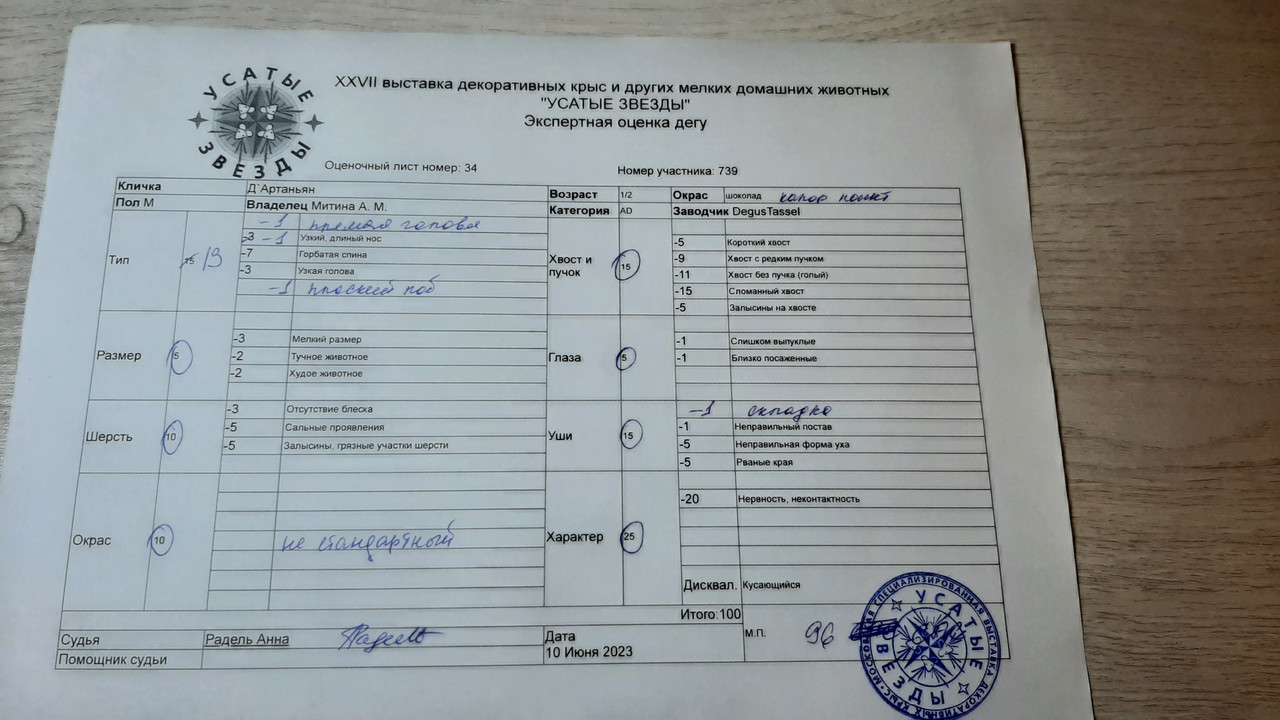 УСАТЫЕ ЗВЕЗДЫ
XXVII выставка декоративных крыс и других мелких домашних животных
"УСАТЫЕ ЗВЕЗДЫ"
Экспертная оценка дегу
Оценочный лист номер: 34
Номер участника: 739
Кличка Д`Артаньян Возраст 1/2 Окрас шоколад колор поинт
Пол М Владелец Митина А. М. Категория AD Заводчик DegusTassel
Тип 15 13
-1 прямая голова
-3 -1 Узкий, длиный нос
-7 Горбатая спина
-3 Узкая голова
-1 плоский лоб
Хвост и пучок 15
-5 Короткий хвост
-9 Хвост с редким пучком
-11 Хвост без пучка (голый)
-15 Сломанный хвост
-5 Залысины на хвосте
Размер 5
-3 Мелкий размер
-2 Тучное животное
-2 Худое животное
Глаза 5
-1 Слишком выпуклые
-1 Близко посаженные
Шерсть 10
-3 Отсутствие блеска
-5 Сальные проявления
-5 Залысины, грязные участки шерсти
Уши 15
-1 складка
-1 Неправильный постав
-5 Неправильная форма уха
-5 Рваные края
Окрас 10
не стандартный
Характер 25
-20 Нервность, неконтактность
Дисквал. Кусающийся
Итого:100
Судья Радель Анна
Помощник судьи
Дата
10 Июня 2023
М.П. 96
МОСКОВСКАЯ СПЕЦИАЛИЗИРОВАННАЯ ВЫСТАВКА ДЕКОРАТИВНЫХ КРЫС
УСАТЫЕ ЗВЕЗДЫ